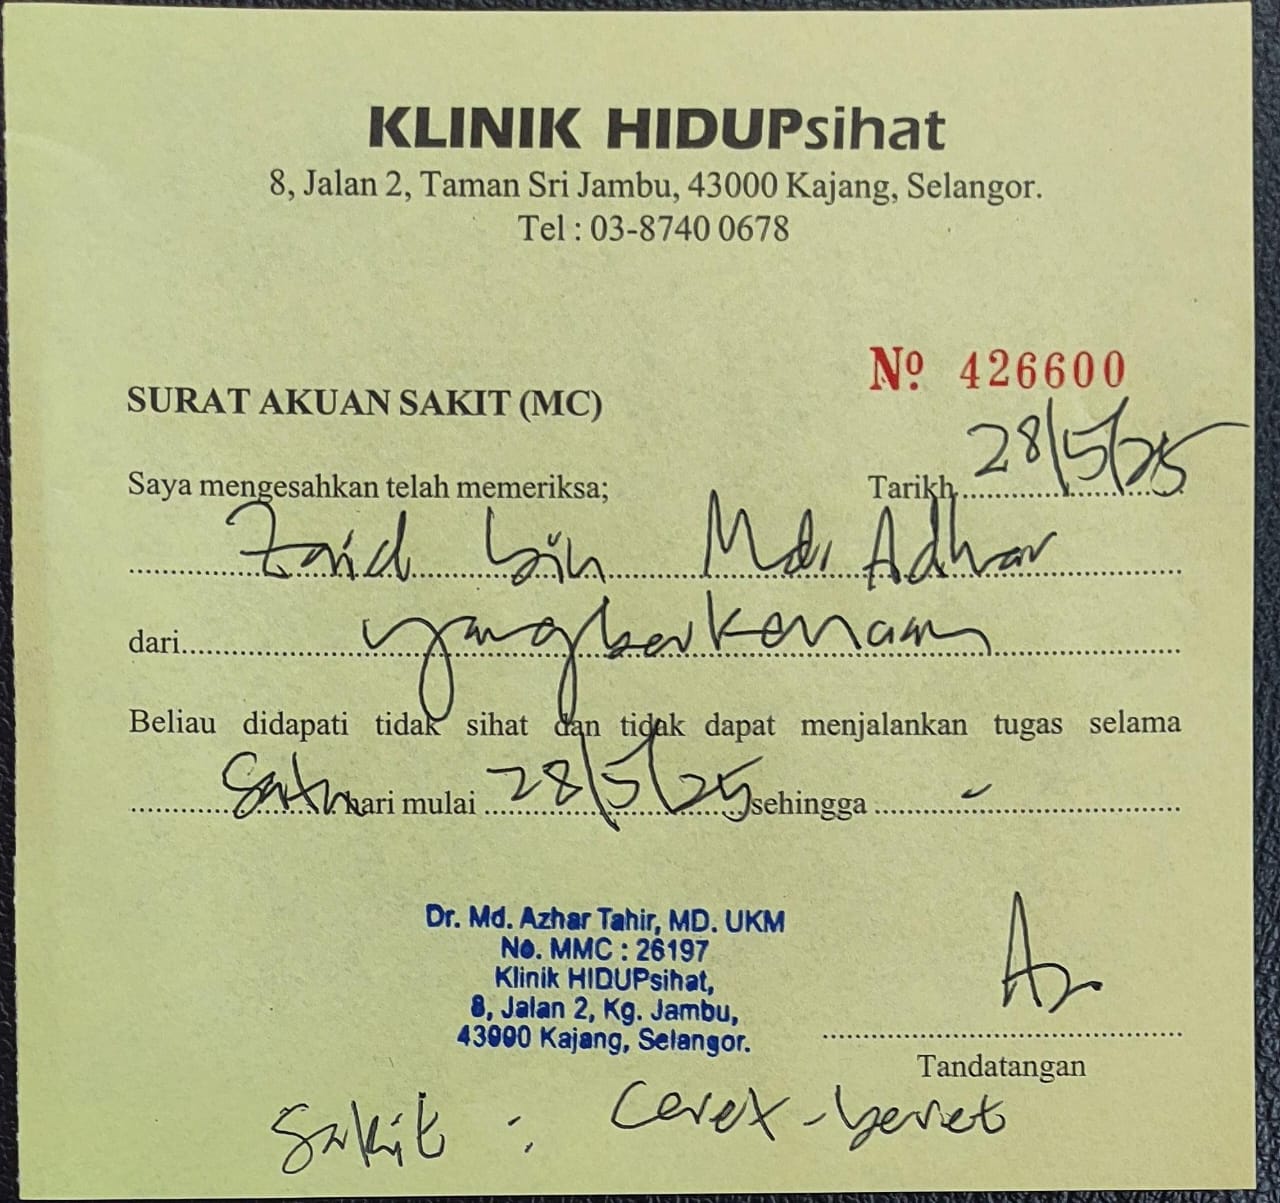 KLINIK HIDUPsihat
8, Jalan 2, Taman Sri Jambu, 43000 Kajang, Selangor.
Tel : 03-8740 0678
Nº 426600
SURAT AKUAN SAKIT (MC)
Saya mengesahkan telah memeriksa; Tarikh 28/5/25
Zaid bin Md. Adhar
dari yang berkenaan
Beliau didapati tidak sihat dan tidak dapat menjalankan tugas selama
Satu hari mulai 28/5/25 sehingga -
Dr. Md. Azhar Tahir, MD. UKM
No. MMC : 26197
Klinik HIDUPsihat,
8, Jalan 2, Kg. Jambu,
43000 Kajang, Selangor.
Tandatangan
Sakit : Cerex-beret